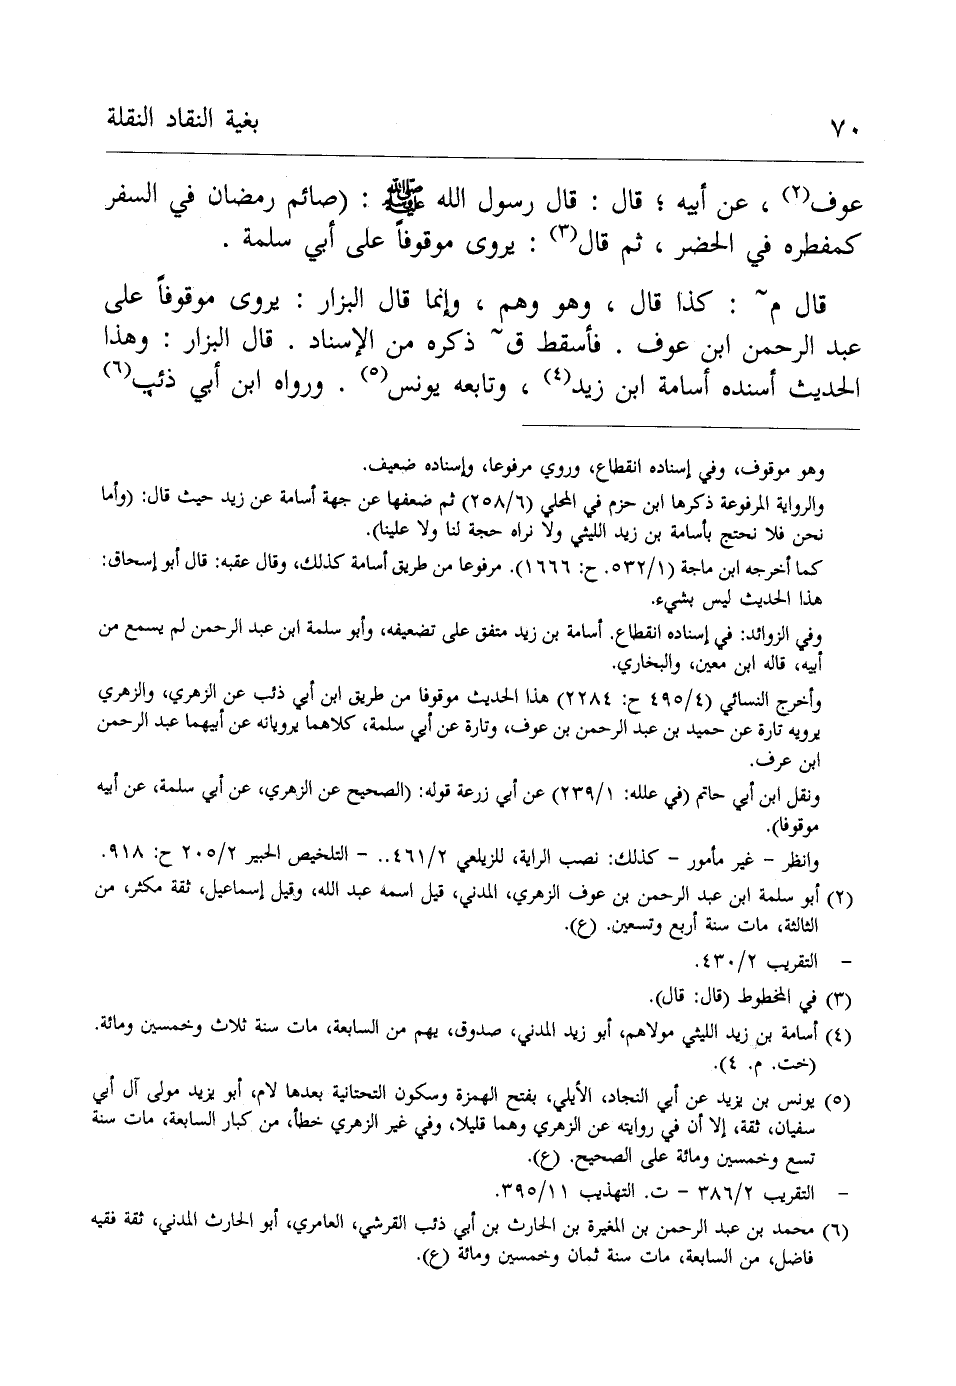 ٧٠ بغية النقاد النقلة
عوف(٢) ، عن أبيه ؛ قال : قال رسول الله ﷺ : (صائم رمضان في السفر
كمفطره في الحضر ، ثم قال(٣) : يروى موقوفاً على أبي سلمة .
قال م~ : كذا قال ، وهو وهم ، وإنما قال البزار : يروى موقوفاً على
عبد الرحمن ابن عوف . فأسقط ق~ ذكره من الإسناد . قال البزار : وهذا
الحديث أسنده أسامة ابن زيد(٤) ، وتابعه يونس(٥) . ورواه ابن أبي ذئب(٦)
وهو موقوف، وفي إسناده انقطاع، وروي مرفوعا، وإسناده ضعيف.
والرواية المرفوعة ذكرها ابن حزم في المحلي (٢٥٨/٦) ثم ضعفها عن جهة أسامة عن زيد حيث قال: (وأما
نحن فلا نحتج بأسامة بن زيد الليثي ولا نراه حجة لنا ولا علينا).
كما أخرجه ابن ماجة (٥٣٢/١. ح: ١٦٦٦). مرفوعا من طريق أسامة كذلك، وقال عقبه: قال أبو إسحاق:
هذا الحديث ليس بشيء.
وفي الزوائد: في إسناده انقطاع. أسامة بن زيد متفق على تضعيفه، وأبو سلمة ابن عبد الرحمن لم يسمع من
أبيه، قاله ابن معين، والبخاري.
وأخرج النسائي (٤٩٥/٤ ح: ٢٢٨٤) هذا الحديث موقوفا من طريق ابن أبي ذئب عن الزهري، والزهري
يرويه تارة عن حميد بن عبد الرحمن بن عوف، وتارة عن أبي سلمة، كلاهما يرويانه عن أبيهما عبد الرحمن
ابن عرف.
ونقل ابن أبي حاتم (في علله: ٢٣٩/١) عن أبي زرعة قوله: (الصحيح عن الزهري، عن أبي سلمة، عن أبيه
موقوفا).
وانظر - غير مأمور - كذلك: نصب الراية، للزيلعي ٤٦١/٢.. - التلخيص الحبير ٢٠٥/٢ ح: ٩١٨.
(٢) أبو سلمة ابن عبد الرحمن بن عوف الزهري، المدني، قيل اسمه عبد الله، وقيل إسماعيل، ثقة مكثر، من
الثالثة، مات سنة أربع وتسعين. (ع).
- التقريب ٤٣٠/٢.
(٣) في المخطوط (قال: قال).
(٤) أسامة بن زيد الليثي مولاهم، أبو زيد المدني، صدوق، يهم من السابعة، مات سنة ثلاث وخمسين ومائة.
(خت. م. ٤).
(٥) يونس بن يزيد عن أبي النجاد، الأيلي، بفتح الهمزة وسكون التحتانية بعدها لام، أبو يزيد مولى آل أبي
سفيان، ثقة، إلا أن في روايته عن الزهري وهما قليلا، وفي غير الزهري خطأ، من كبار السابعة، مات سنة
تسع وخمسين ومائة على الصحيح. (ع).
- التقريب ٣٨٦/٢ - ت. التهذيب ٣٩٥/١١.
(٦) محمد بن عبد الرحمن بن المغيرة بن الحارث بن أبي ذئب القرشي، العامري، أبو الحارث المدني، ثقة فقيه
فاضل، من السابعة، مات سنة ثمان وخمسين ومائة (ع).